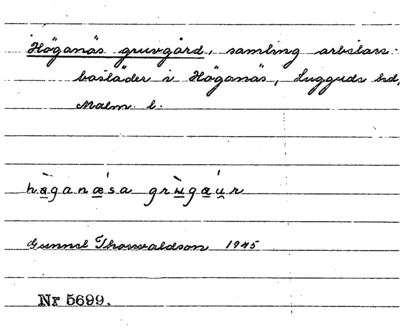 Höganäs gruvgård, samling arbetare-
bostäder i Höganäs, Luggude hd,
Malm. l.
hǫ̀ganǽsa grùgąu̯r
Gunnel Thorvaldson 1945
Nr 5699.